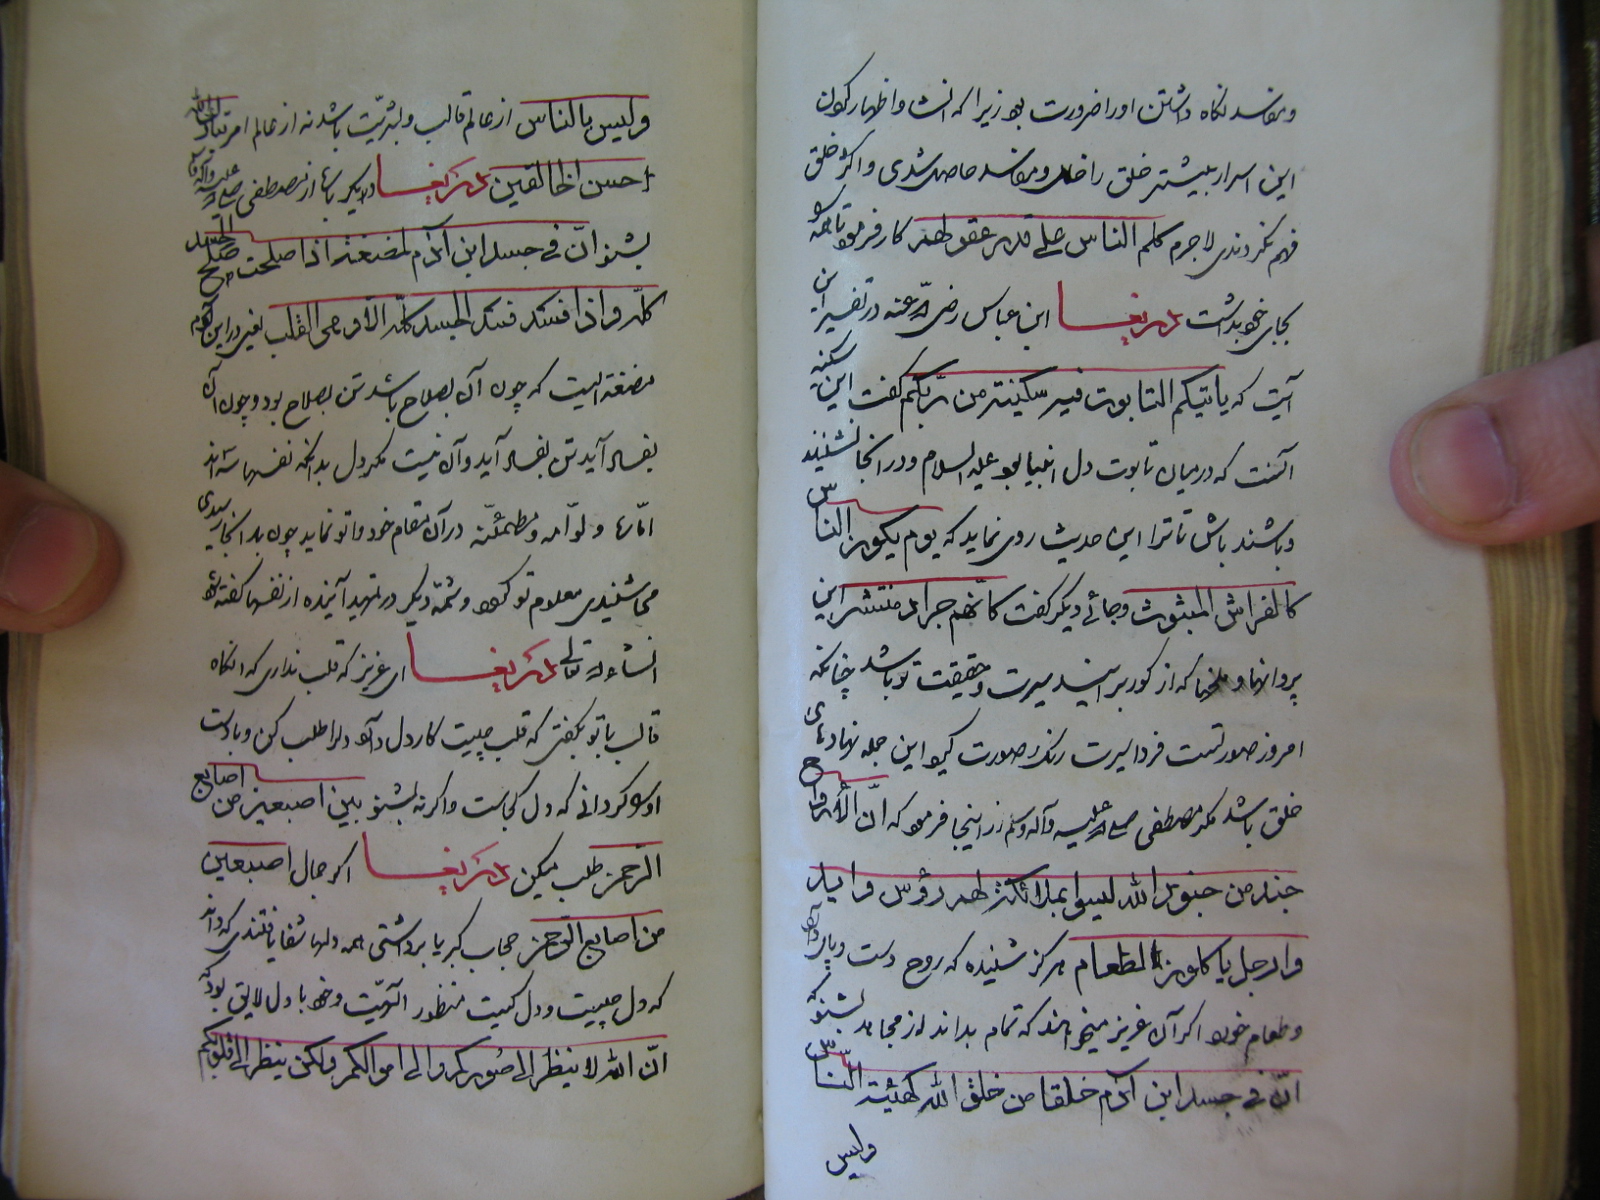 ومفاسد نگاه داشتن او را ضرورت بود زیرا که افشا و اظهار کردن
این اسرار بیشتر خلق را خلل و مفاسد حاصل شدی و اکثر خلق
فهم نکردندی لاجرم کلم الناس علی قدر عقولهم کار فرمود تا همه
بجای خود بداشت دریغا ابن عباس رضی الله عنه در تفسیر این
آیت که یأتیکم التابوت فیه سکینة من ربکم گفت این سکینه
آنست که در میان تابوت دل انبیا بود علیه السلام و در آنجا نشینند
و باشند باش تا ترا این حدیث روی نماید که یوم یکون الناس
کالفراش المبثوث و جائی دیگر گفت کانهم جراد منتشر این
پروانها و ملخها که از گور برآیند سیرت و حقیقت تو باشد چنانکه
امروز صورتست فردا سیرت رنگ صورت گیرد این جمله نهادهای
خلق باشد مگر مصطفی صلی الله علیه وآله وسلم از اینجا فرمود که ان الارواح
جند من جنود الله لیسوا بملائکة لهم رؤس و اید
وارجل یاکلون الطعام هرگز شنیده که روح دست و پای دارد
و طعام خورد اگر آن عزیز میخواهند که تمام بداند از مجاهد بشنو که
ان فی جسد ابن آدم خلقا من خلق الله کهیئة الناس
ولیس
ولیس بالناس از عالم قالب و بشریت باشد نه از عالم امر تبارک الله
احسن الخالقین دریغا دیگر باره از مصطفی صلی الله علیه وآله
بشنو ان فی جسد ابن آدم لمضغة اذا صلحت صلح الجسد
کله و اذا فسدت فسد الجسد کله الا و هی القلب یعنی در این آدم
مضغه ایست که چون آن بصلاح باشد تن بصلاح بود و چون آن
بفساد آید تن بفساد آید و آن نیست مگر دل بدانکه نفسها سه اند
اماره و لوامه و مطمئنه در آن مقام خود واتو نماید چون بدانجا رسیدی
می شنیدی معلوم تو گردد و شمه دیگر در تمهید آینده از نفسها گفته شود
انشاء الله تعالی دریغا ای عزیز که قلب نداری که آنگاه
قالب با تو بگفتی که قلب چیست کار دل دارد دل را طلب کن و بدست
آور گر دانی که دل کجاست و اگر نه بشنو بین اصبعین من اصابع
الرحمن طلب میکن دریغا اگر جمال اصبعین
من اصابع الرحمن حجاب کبریا برداشتی همه دلها شفا یافتندی که داند
که دل چیست و دل کیست منظور الهیت و خود با دل لایق بود که
ان الله لا ینظر الی صورکم و الی اموالکم ولکن ینظر الی قلوبکم